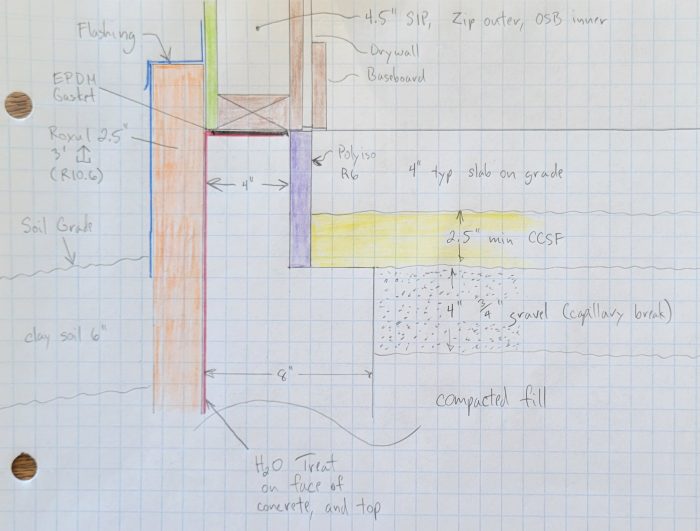 4.5" SIP, Zip outer, OSB inner
Flashing
Drywall
Baseboard
EPDM
Gasket
Roxul 2.5"
3'
(R10.6)
Polyiso
R6
4" typ slab on grade
4"
Soil Grade
2.5" min CCSF
4" 3/4" gravel (capillary break)
clay soil 6"
8"
compacted fill
H₂O Treat
on face of
concrete, and top